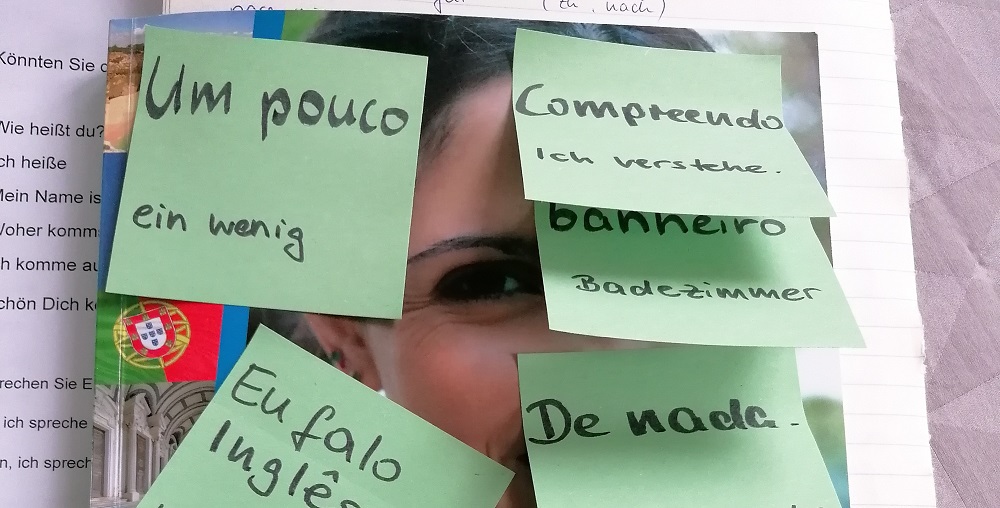 (zu, nach)
Könnten Sie
Wie heißt du?
ich heiße
Mein Name is
Woher komm
ch komme au
chön Dich k
rechen Sie E
ich spreche
n, ich sprech
Um pouco
ein wenig
Compreendo
Ich verstehe.
banheiro
Badezimmer
Eu falo
Inglês
De nada.